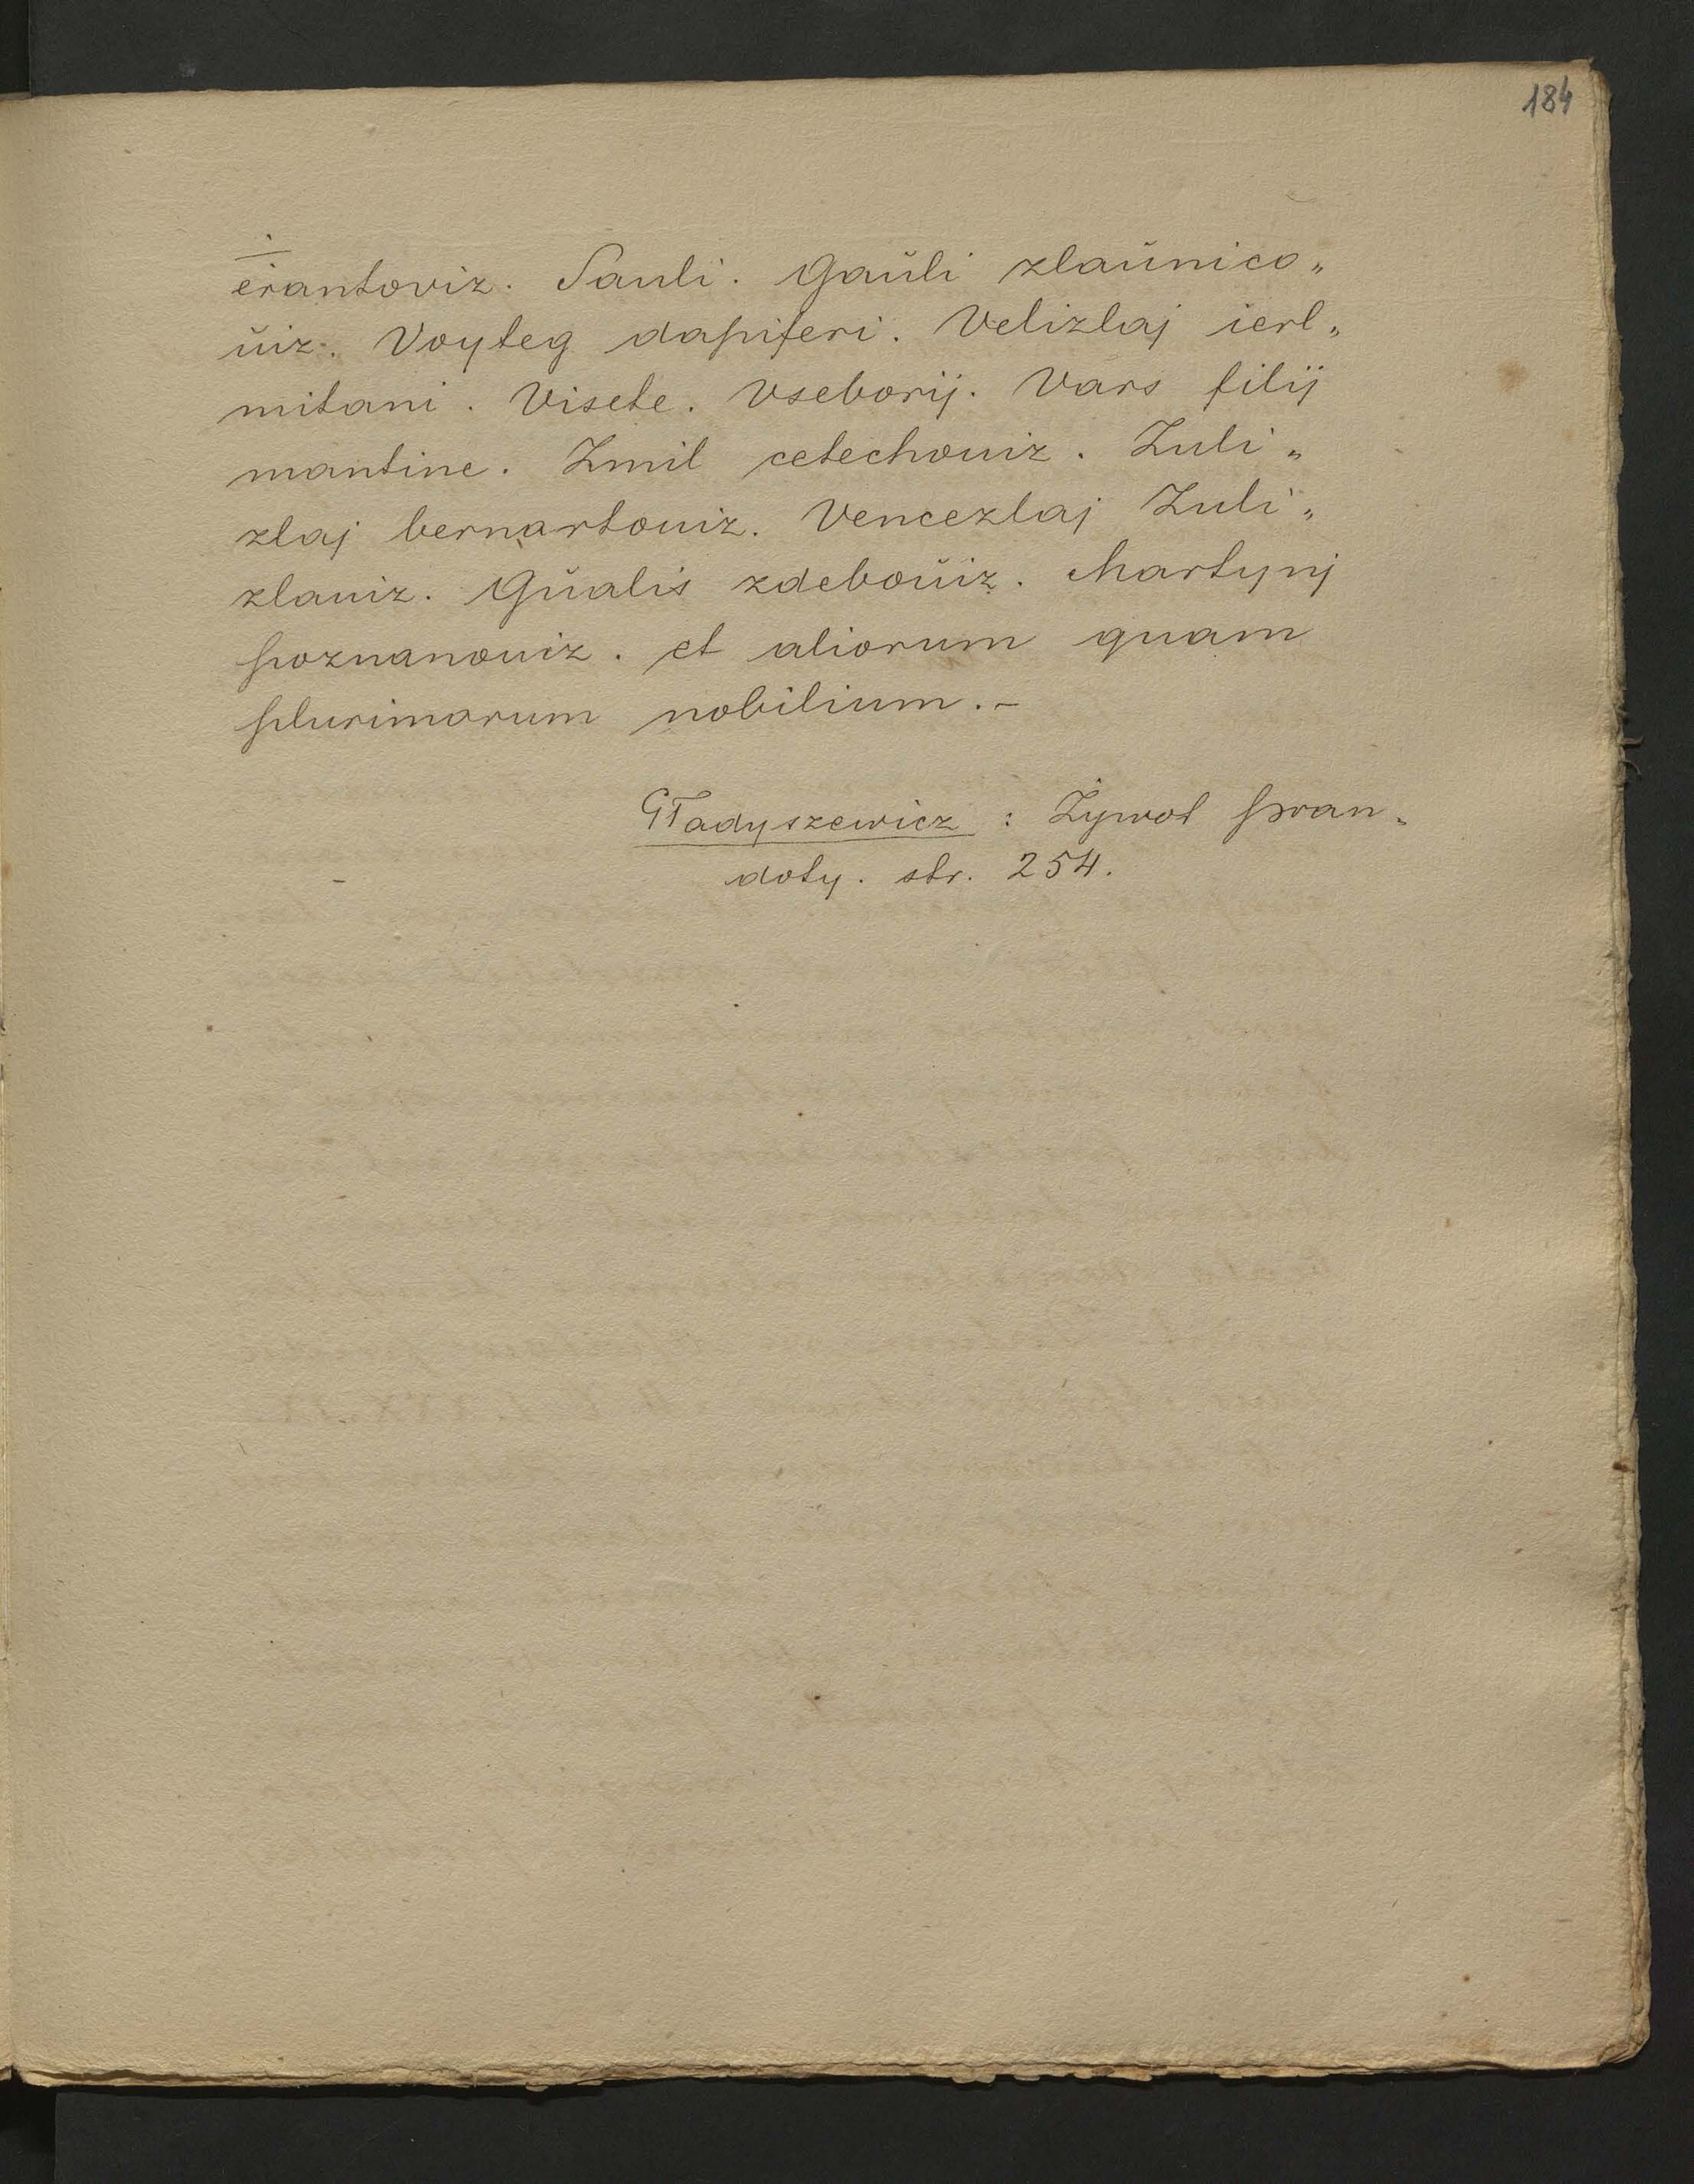 184
erantoviz. Sauli. Gaŭli zlaŭnico„
ŭiz. Voyteg dapiferi. Velizlaj ierl„
mitani. Visete. Vseborij. Vars filij
mantine. Zmil cetechouiz. Zuli„
zlaj bernartouiz. Vencezlaj Zuli„
zlauiz. Gŭalis zdeboŭiz. Martynj
poznanouiz. et aliorum quam
plurimorum nobilium.-
Gładyszewicz : Żywot pran„
doty. str. 254.